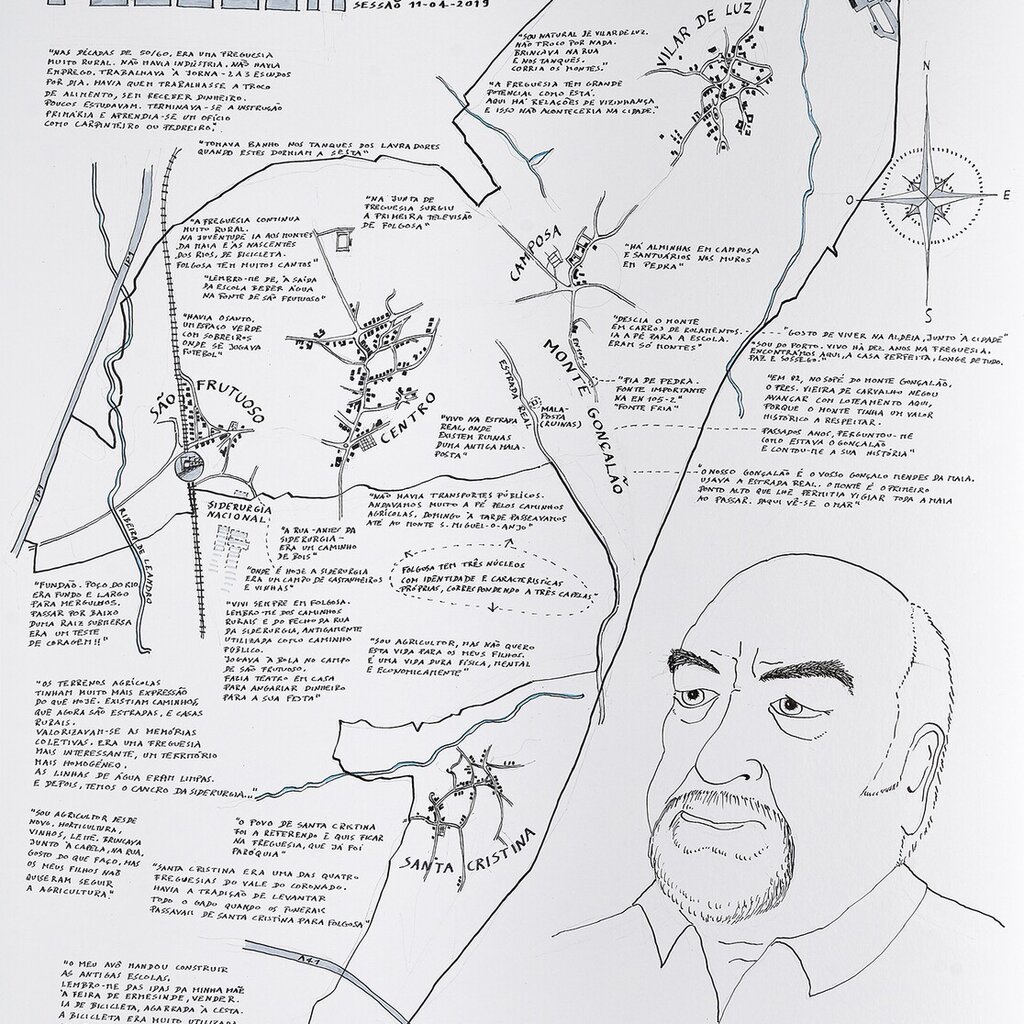 SESSÃO 11-04-2019
"NAS DÉCADAS DE 50/60, ERA UMA FREGUESIA
MUITO RURAL. NÃO HAVIA INDÚSTRIA. NÃO HAVIA
EMPREGO. TRABALHAVA À JORNA - 2 A 3 ESCUDOS
POR DIA. HAVIA QUEM TRABALHASSE A TROCO
DE ALIMENTO, SEM RECEBER DINHEIRO.
POUCOS ESTUDAVAM. TERMINAVA-SE A INSTRUÇÃO
PRIMÁRIA E APRENDIA-SE UM OFÍCIO
COMO CARPINTEIRO OU PEDREIRO."
"TOMAVA BANHO NOS TANQUES DOS LAVRADORES
QUANDO ESTES DORMIAM A SESTA"
"SOU NATURAL DE VILAR DE LUZ.
NÃO TROCO POR NADA.
BRINCAVA NA RUA
E NOS TANQUES.
CORRIA OS MONTES."
"A FREGUESIA TEM GRANDE
POTENCIAL COMO ESTÁ.
AQUI HÁ RELAÇÕES DE VIZINHANÇA
E ISSO NÃO ACONTECERIA NA CIDADE."
VILAR DE LUZ
N
O
E
S
"NA JUNTA DE
FREGUESIA SURGIU
A PRIMEIRA TELEVISÃO
DE FOLGOSA"
"A FREGUESIA CONTINUA
MUITO RURAL.
NA JUVENTUDE IA AOS MONTES
DA MAIA E ÀS NASCENTES
DOS RIOS, DE BICICLETA.
FOLGOSA TEM MUITOS CANTOS"
"LEMBRO-ME DE, À SAÍDA
DA ESCOLA BEBER ÁGUA
NA FONTE DE SÃO FRUTUOSO"
"HAVIA O SANTO,
UM ESPAÇO VERDE
COM SOBREIROS
ONDE SE JOGAVA
FUTEBOL"
CAMPOSA
"HÁ ALMINHAS EM CAMPOSA
E SANTUÁRIOS NOS MUROS
EM PEDRA"
"DESCIA O MONTE
EM CARROS DE ROLAMENTOS.
IA A PÉ PARA A ESCOLA.
ERAM SÓ MONTES"
"GOSTO DE VIVER NA ALDEIA, JUNTO À CIDADE"
"SOU DO PORTO. VIVO HÁ DEZ ANOS NA FREGUESIA.
ENCONTRÁMOS AQUI, A CASA PERFEITA, LONGE DE TUDO.
PAZ E SOSSEGO."
EN 105-2
MONTE GONÇALÃO
"PIA DE PEDRA.
FONTE IMPORTANTE
NA EN 105-2"
"FONTE FRIA"
"EM 82, NO SOPÉ DO MONTE GONÇALÃO,
O PRES. VIEIRA DE CARVALHO NEGOU
AVANÇAR COM LOTEAMENTO AQUI,
PORQUE O MONTE TINHA UM VALOR
HISTÓRICO A RESPEITAR.
PASSADOS ANOS, PERGUNTOU-ME
COMO ESTAVA O GONÇALÃO
E CONTOU-ME A SUA HISTÓRIA"
"O NOSSO GONÇALÃO É O VOSSO GONÇALO MENDES DA MAIA.
USAVA A ESTRADA REAL. O MONTE É O PRIMEIRO
PONTO ALTO QUE LHE PERMITIA VIGIAR TODA A MAIA
AO PASSAR. DAQUI VÊ-SE O MAR"
ESTRADA REAL
MALA-
POSTA
(RUÍNAS)
SÃO FRUTUOSO
CENTRO
"VIVO NA ESTRADA
REAL, ONDE
EXISTEM RUÍNAS
DUMA ANTIGA MALA-
POSTA"
IP1
IP1
RIBEIRA DE LEANDRO
SIDERURGIA
NACIONAL
"A RUA ANTES DA
SIDERURGIA
ERA UM CAMINHO
DE BOIS"
"ONDE É HOJE A SIDERURGIA
ERA UM CAMPO DE CASTANHEIROS
E VINHAS"
"NÃO HAVIA TRANSPORTES PÚBLICOS.
ANDÁVAMOS MUITO A PÉ PELOS CAMINHOS
AGRÍCOLAS, DOMINGO À TARDE PASSEÁVAMOS
ATÉ AO MONTE S. MIGUEL-O-ANJO"
FOLGOSA TEM TRÊS NÚCLEOS
COM IDENTIDADE E CARACTERÍSTICAS
PRÓPRIAS, CORRESPONDENDO A TRÊS CAPELAS"
"FUNDÃO. POÇO DO RIO,
ERA FUNDO E LARGO
PARA MERGULHOS.
PASSAR POR BAIXO
DUMA RAIZ SUBMERSA
ERA UM TESTE
DE CORAGEM!!"
"VIVI SEMPRE EM FOLGOSA.
LEMBRO-ME DOS CAMINHOS
RURAIS E DO FECHO DA RUA
DA SIDERURGIA, ANTIGAMENTE
UTILIZADA COMO CAMINHO
PÚBLICO.
JOGAVA À BOLA NO CAMPO
DE SÃO FRUTUOSO.
FAZIA TEATRO EM CASA
PARA ANGARIAR DINHEIRO
PARA A SUA FESTA"
"SOU AGRICULTOR, MAS NÃO QUERO
ESTA VIDA PARA OS MEUS FILHOS.
É UMA VIDA DURA FÍSICA, MENTAL
E ECONOMICAMENTE"
"OS TERRENOS AGRÍCOLAS
TINHAM MUITO MAIS EXPRESSÃO
DO QUE HOJE. EXISTIAM CAMINHOS,
QUE AGORA SÃO ESTRADAS, E CASAS
RURAIS.
VALORIZAVAM-SE AS MEMÓRIAS
COLETIVAS. ERA UMA FREGUESIA
MAIS INTERESSANTE, UM TERRITÓRIO
MAIS HOMOGÉNEO.
AS LINHAS DE ÁGUA ERAM LIMPAS.
E DEPOIS, TEMOS O CANCRO DA SIDERURGIA..."
"SOU AGRICULTOR DESDE
NOVO. HORTICULTURA,
VINHOS, LEITE. BRINCAVA
JUNTO À CAPELA, NA RUA.
GOSTO DO QUE FAÇO, MAS
OS MEUS FILHOS NÃO
QUISERAM SEGUIR
A AGRICULTURA."
"O POVO DE SANTA CRISTINA
FOI A REFERENDO E QUIS FICAR
NA FREGUESIA, QUE JÁ FOI
PARÓQUIA"
SANTA CRISTINA
"SANTA CRISTINA ERA UMA DAS QUATRO
FREGUESIAS DO VALE DO CORONADO.
HAVIA A TRADIÇÃO DE LEVANTAR
TODO O GADO QUANDO OS FUNERAIS
PASSAVAM DE SANTA CRISTINA PARA FOLGOSA"
A41
"O MEU AVÔ MANDOU CONSTRUIR
AS ANTIGAS ESCOLAS.
LEMBRO-ME DAS IDAS DA MINHA MÃE
À FEIRA DE ERMESINDE, VENDER.
IA DE BICICLETA, AGARRADA À CESTA.
A BICICLETA ERA MUITO UTILIZADA